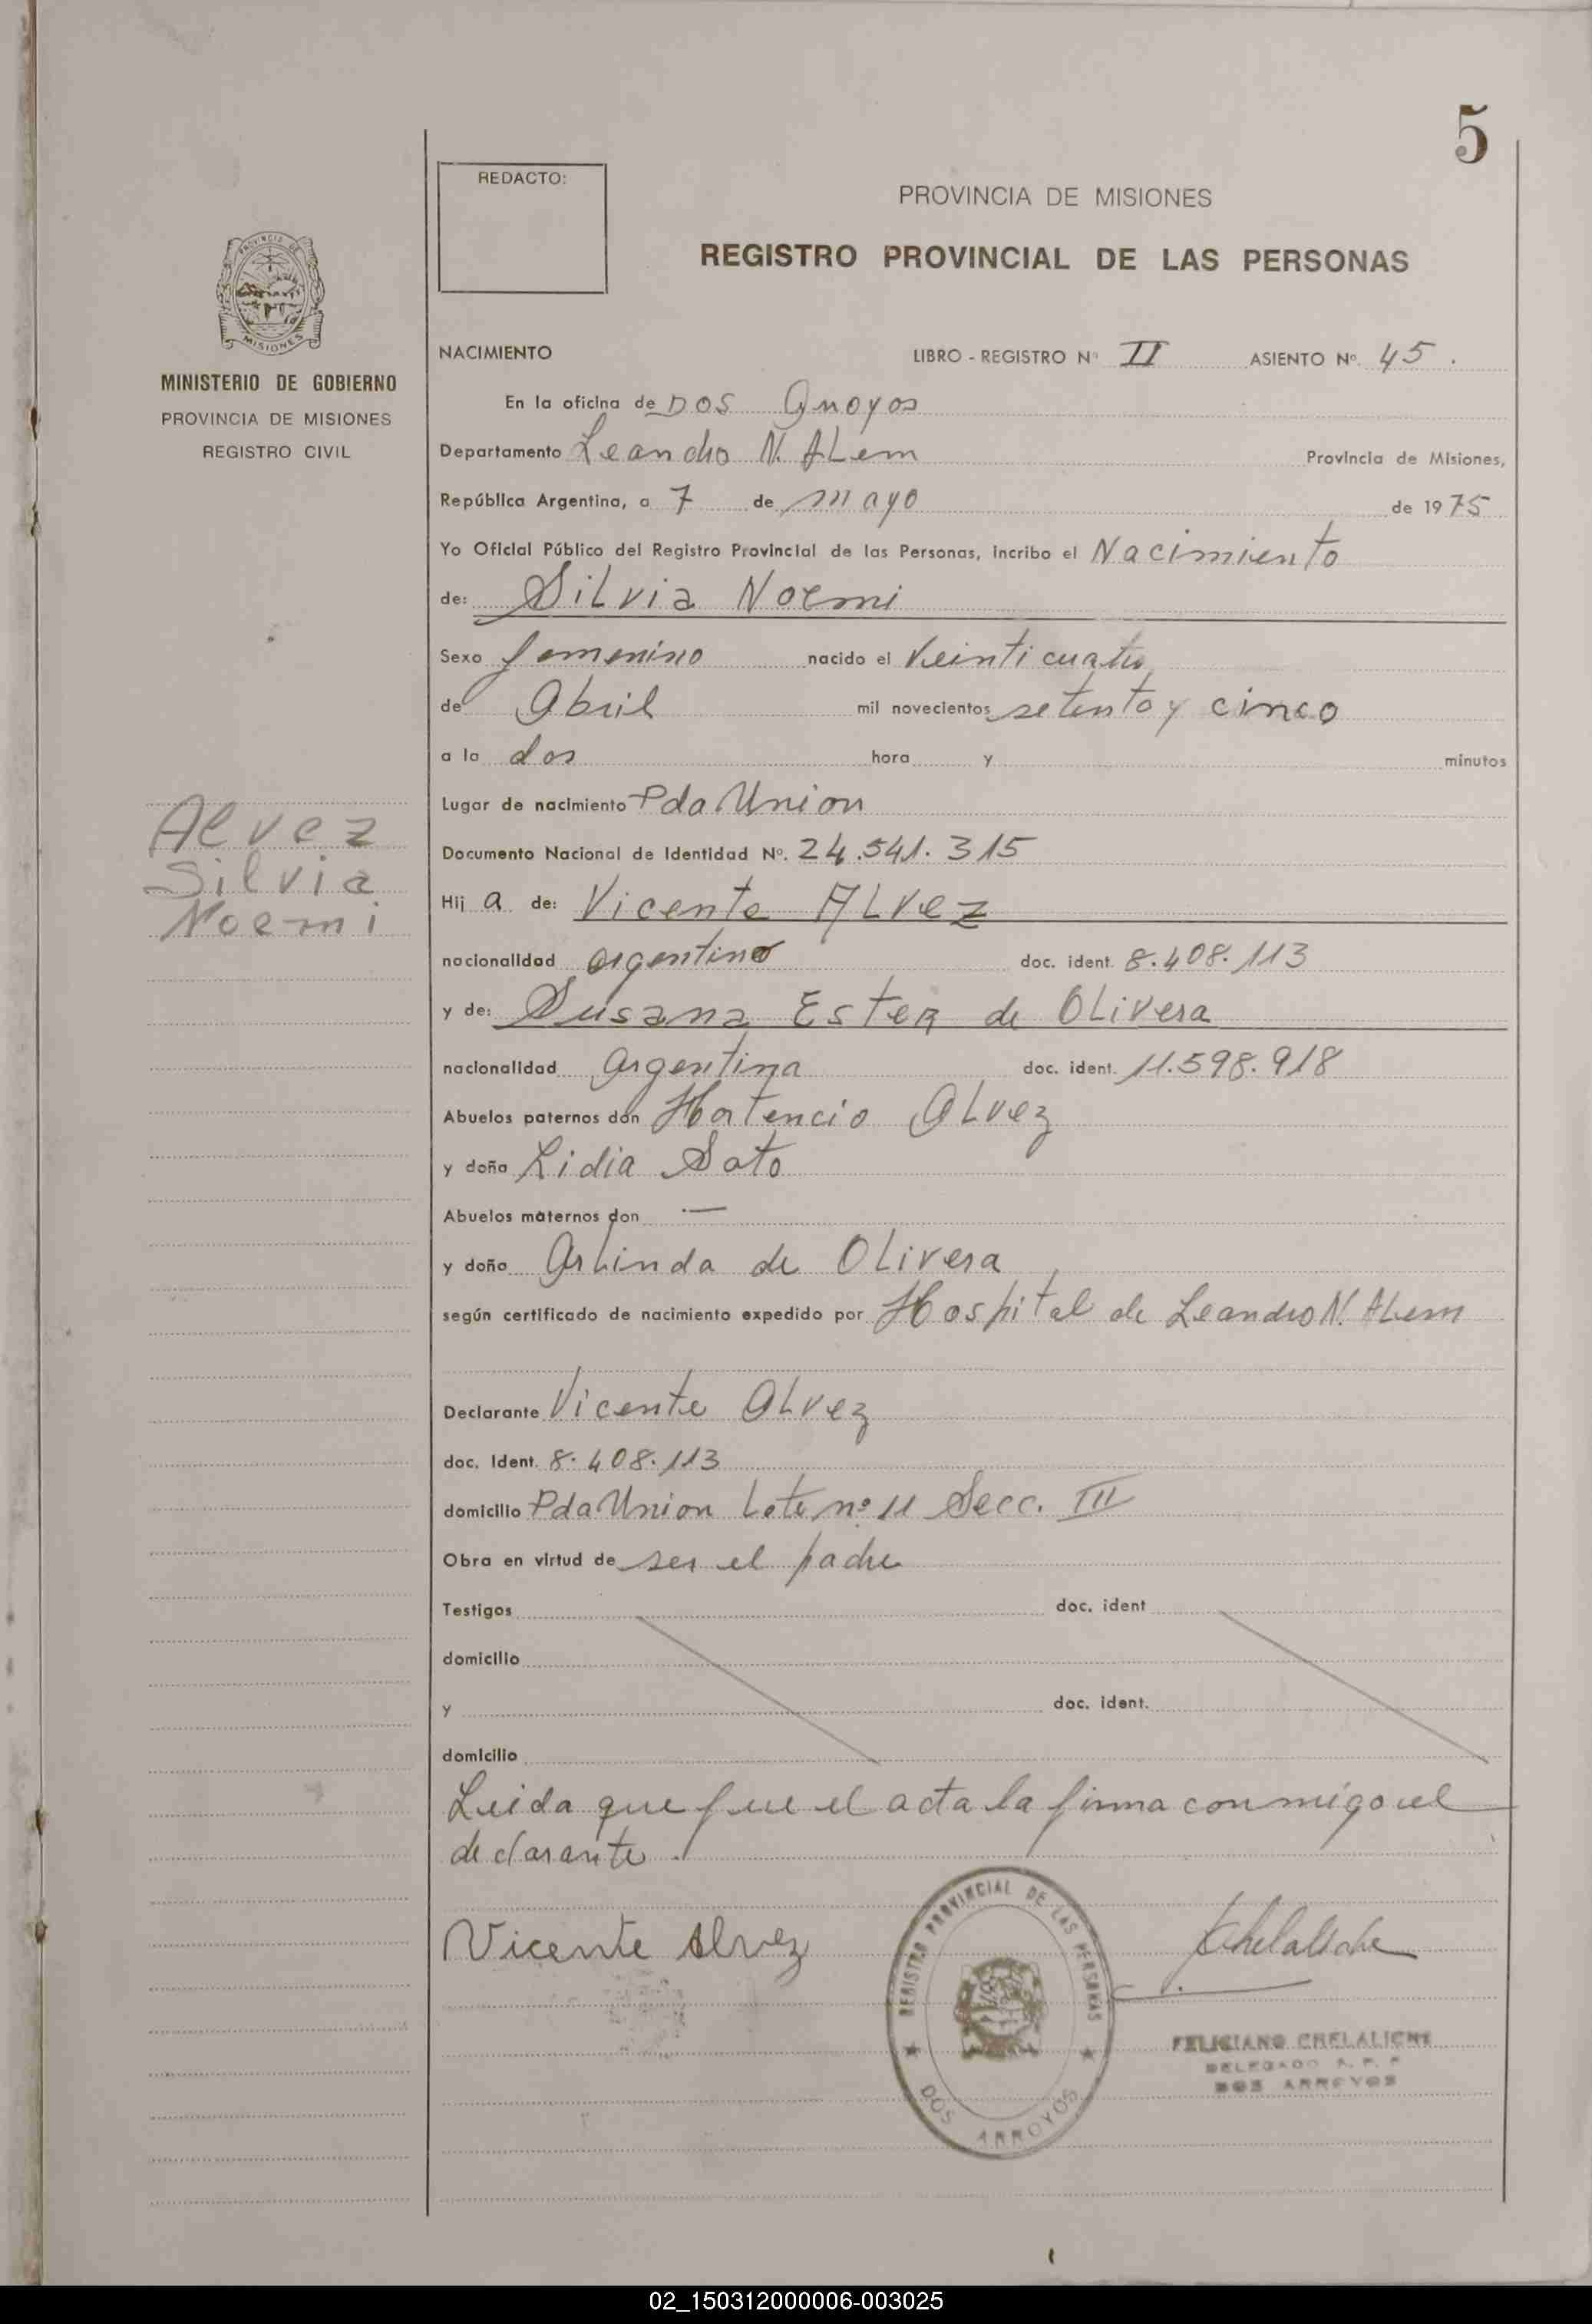 5
REDACTO:
PROVINCIA DE MISIONES
REGISTRO PROVINCIAL DE LAS PERSONAS
PROVINCIA DE
MISIONES
MINISTERIO DE GOBIERNO
PROVINCIA DE MISIONES
REGISTRO CIVIL
NACIMIENTO LIBRO - REGISTRO Nº II ASIENTO Nº. 45.
En la oficina de DOS Arroyos
Departamento Leandro N. ALem Provincia de Misiones,
República Argentina, a 7 de mayo de 1975
Yo Oficial Público del Registro Provincial de las Personas, incribo el Nacimiento
de: SiLvia Noemi
Sexo femenino nacido el Veinticuatro
de Abril mil novecientos setenta y cinco
a la dos hora y minutos
Lugar de nacimiento Pda Union
Documento Nacional de Identidad Nº. 24.541.315
Hij a de: Vicente ALvez
nacionalidad argentino doc. ident. 8.408.113
y de: Susana Ester de OLivera
nacionalidad argentina doc. ident. 11.598.918
Abuelos paternos don Hortencio ALvez
y doña Lidia Soto
Abuelos maternos don —
y doña ArLinda de OLivera
según certificado de nacimiento expedido por Hospital de Leandro N. ALem
Declarante Vicente ALvez
doc. Ident. 8.408.113
domicilio Pda Union Lote nº 11 Secc. III
Obra en virtud de ser el padre
Testigos doc. ident
domicilio
y doc. ident.
domicilio
Leida que fue el acta la firma conmigo el
declarante.
Alvez
Silvia
Noemi
Vicente Alvez
REGISTRO PROVINCIAL DE LAS PERSONAS
DOS ARROYOS
FELICIANO CHELALICHE
DELEGADO R. P. P
DOS ARROYOS
02_150312000006-003025